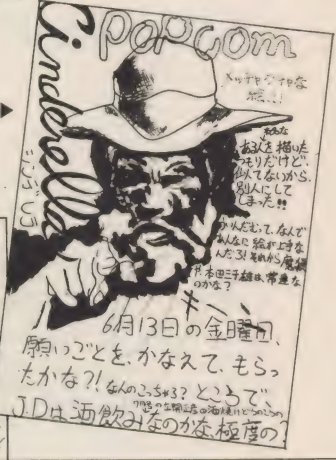 popcom
Cinderella
シンデレラ
メッチャクチャな
絵…!
ある人を描いた
つもりだけど、
似てないから、
別人にして
しまった!!
って、なんで
あんなに絵が上手な
んだろ! それから
は、常連な
のかな?
6月13日の金曜日、
願いごとを、かなえて、もらっ
たかな?! なんのこっちゃろ? ところで、
J.Dは酒飲みなのかな、極度の?